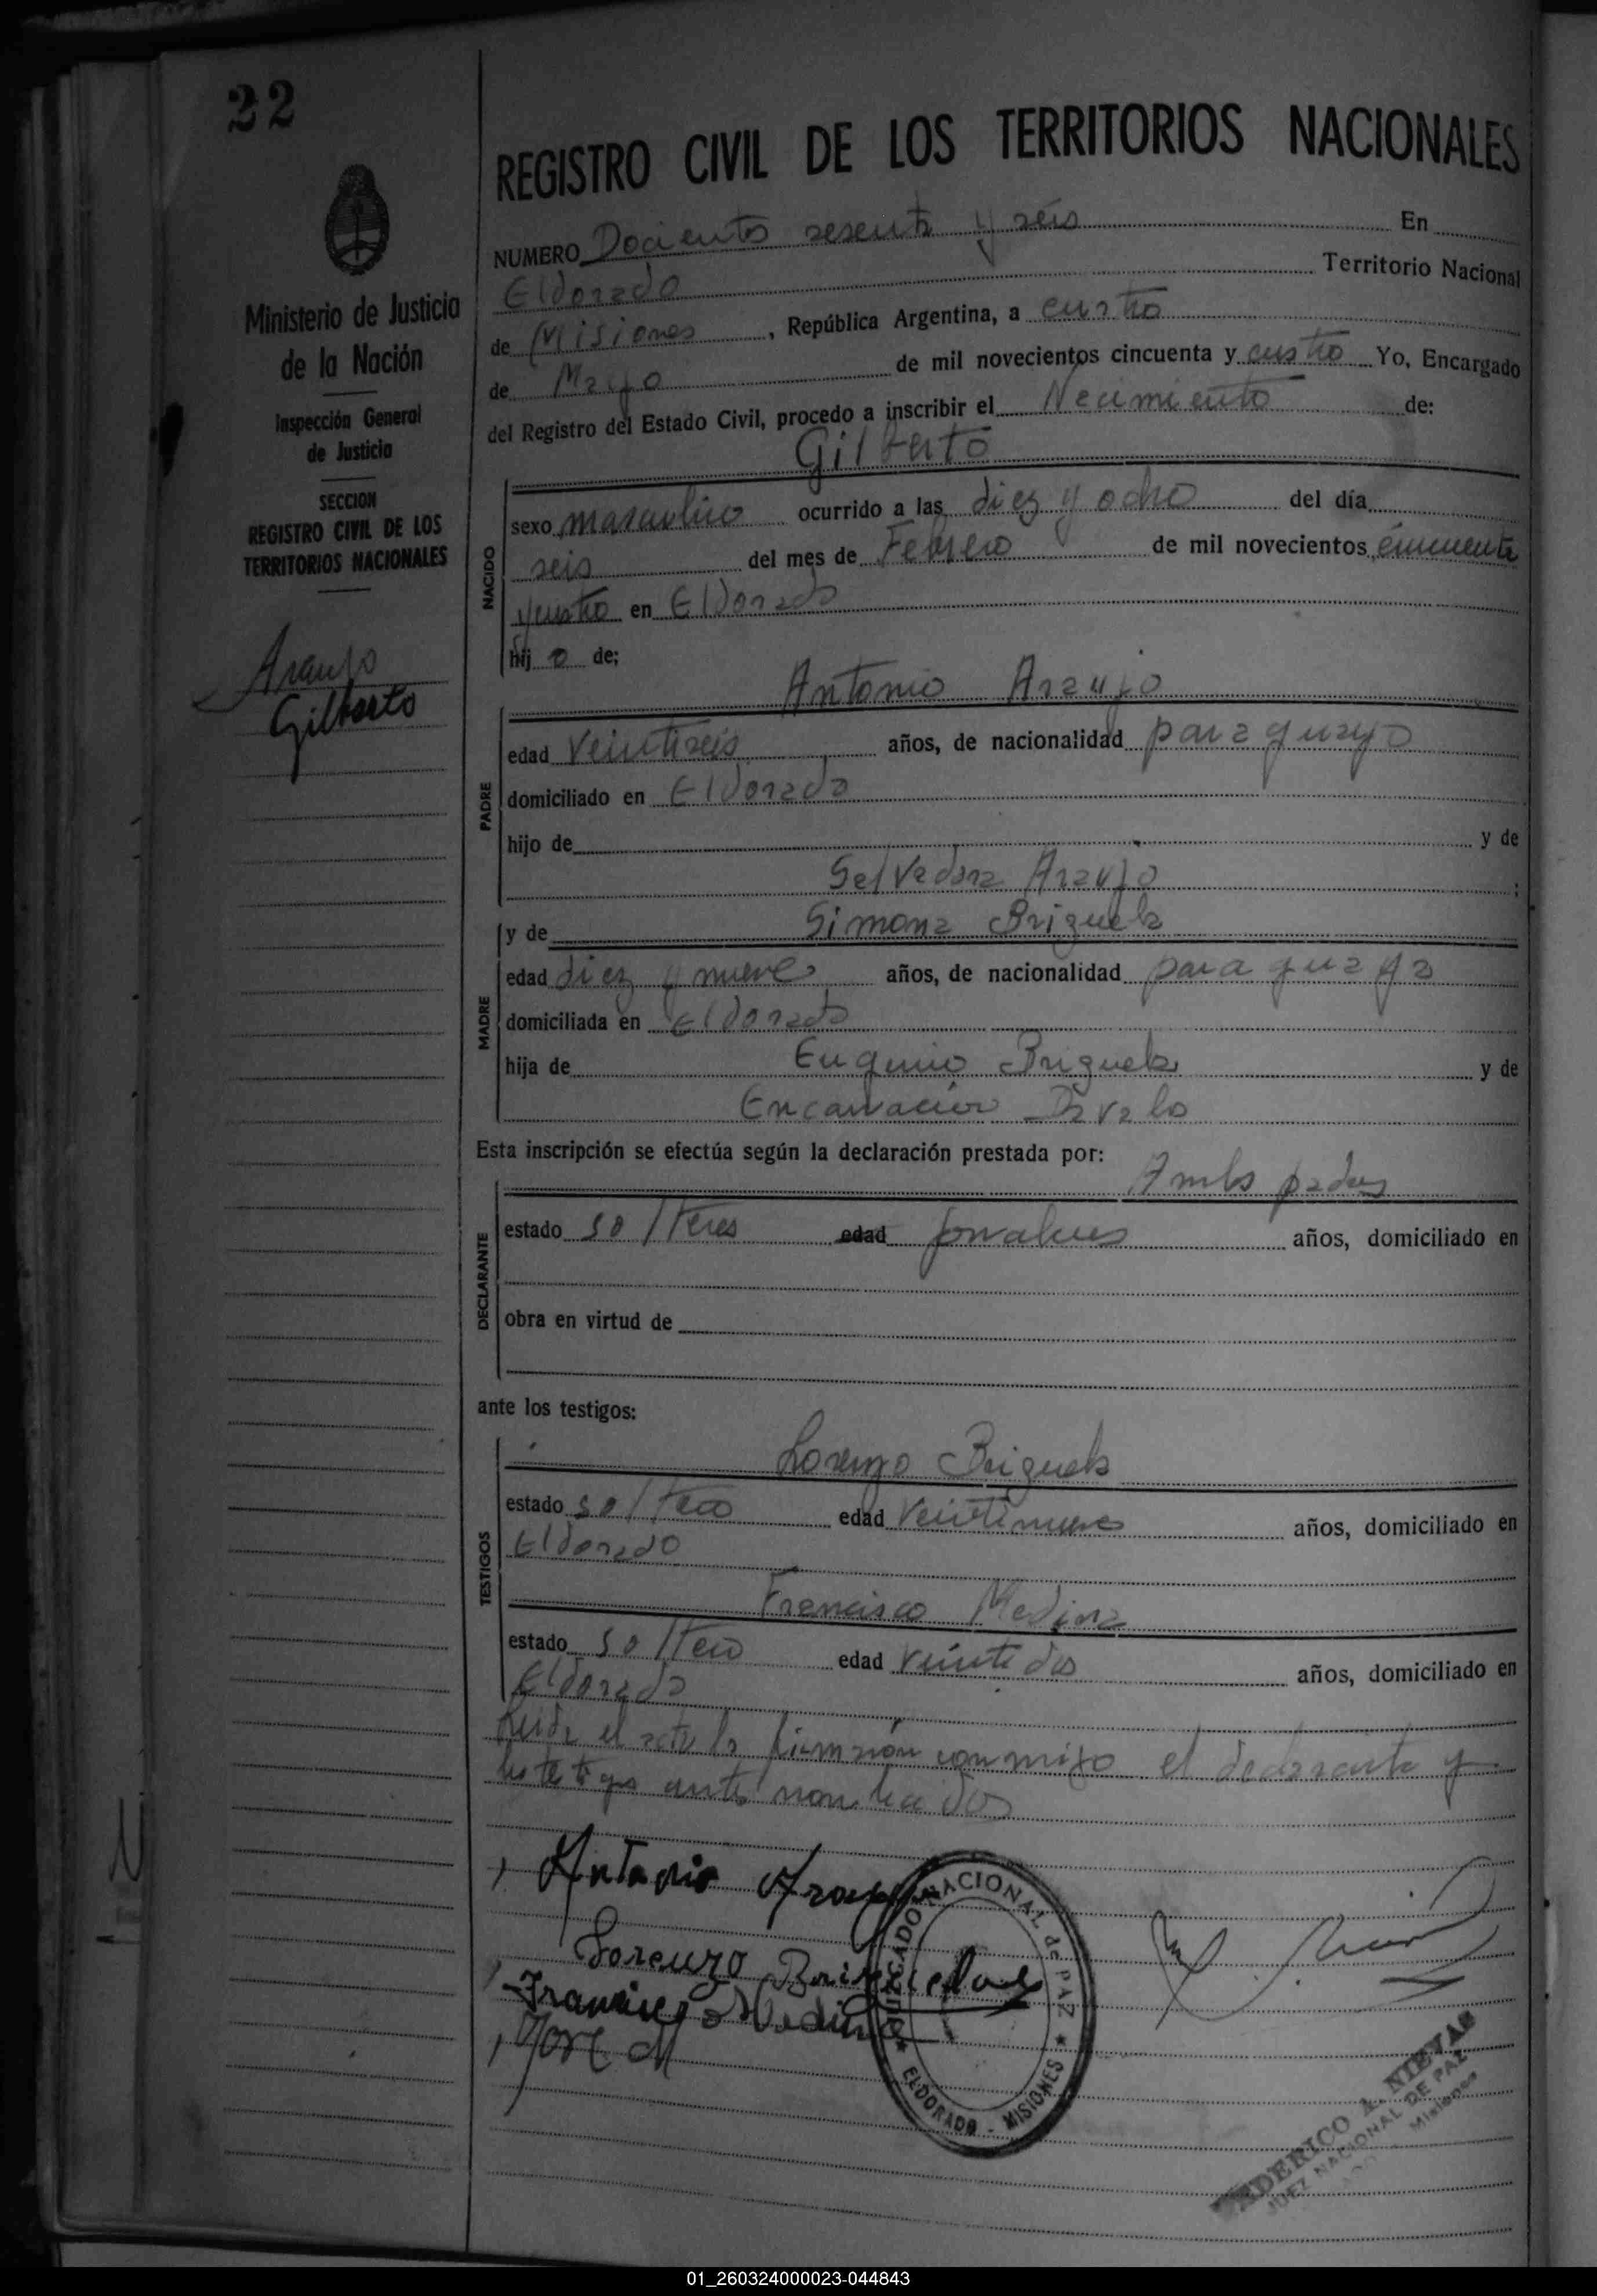 22
Ministerio de Justicia
de la Nación
Inspección General
de Justicia
SECCION
REGISTRO CIVIL DE LOS
TERRITORIOS NACIONALES
Araujo
Gilberto
REGISTRO CIVIL DE LOS TERRITORIOS NACIONALES
NUMERO Docientos sesenta y seis En
Eldorado Territorio Nacional
de Misiones, República Argentina, a cuatro
de Mayo de mil novecientos cincuenta y cuatro Yo, Encargado
del Registro del Estado Civil, procedo a inscribir el Nacimiento de:
Gilberto
NACIDO
sexo masculino ocurrido a las diez y ocho del día
seis del mes de Febrero de mil novecientos cincuenta
y cuatro en Eldorado
hij o de;
Antonio Araujo
PADRE
edad veintiseis años, de nacionalidad paraguayo
domiciliado en Eldorado
hijo de y de
Salvadora Araujo;
y de Simona Brizuela
MADRE
edad diez y nueve años, de nacionalidad paraguaya
domiciliada en Eldorado
hija de Eugenio Brizuela y de
Encarnación Davalo
Esta inscripción se efectúa según la declaración prestada por:
Ambos padres
DECLARANTE
estado solteros edad años, domiciliado en
obra en virtud de
ante los testigos:
Lorenzo Brizuela
TESTIGOS
estado soltero edad veintinueve años, domiciliado en
Eldorado
Francisco Medina
estado soltero edad veintidos años, domiciliado en
Eldorado
el acta la firmarón conmigo el declarante y
los testigos antes nombrados
Antonio Araujo
Lorenzo Brizuela
Francisco Medina
JUZGADO NACIONAL de PAZ
ELDORADO - MISIONES
FEDERICO A. NIEVAS
JUEZ NACIONAL DE PAZ
Misiones
01_260324000023-044843